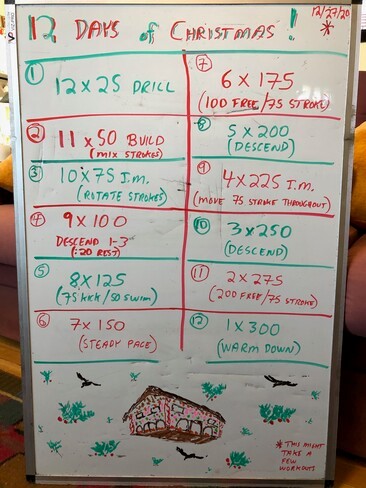 12 DAYS of CHRISTMAS!
12/27/20
*
① 12 x 25 DRILL
② 11 x 50 BUILD
(MIX STROKES)
③ 10 x 75 I.M.
(ROTATE STROKES)
④ 9 x 100
DESCEND 1-3
(:20 REST)
⑤ 8 x 125
(75 KICK/50 SWIM)
⑥ 7 x 150
(STEADY PACE)
⑦ 6 x 175
(100 FREE/75 STROKE)
⑧ 5 x 200
(DESCEND)
⑨ 4 x 225 I.M.
(MOVE 75 STROKE THROUGHOUT)
⑩ 3 x 250
(DESCEND)
⑪ 2 x 275
(200 FREE/75 STROKE)
⑫ 1 x 300
(WARM DOWN)
* THIS MIGHT
TAKE A
FEW
WORKOUTS